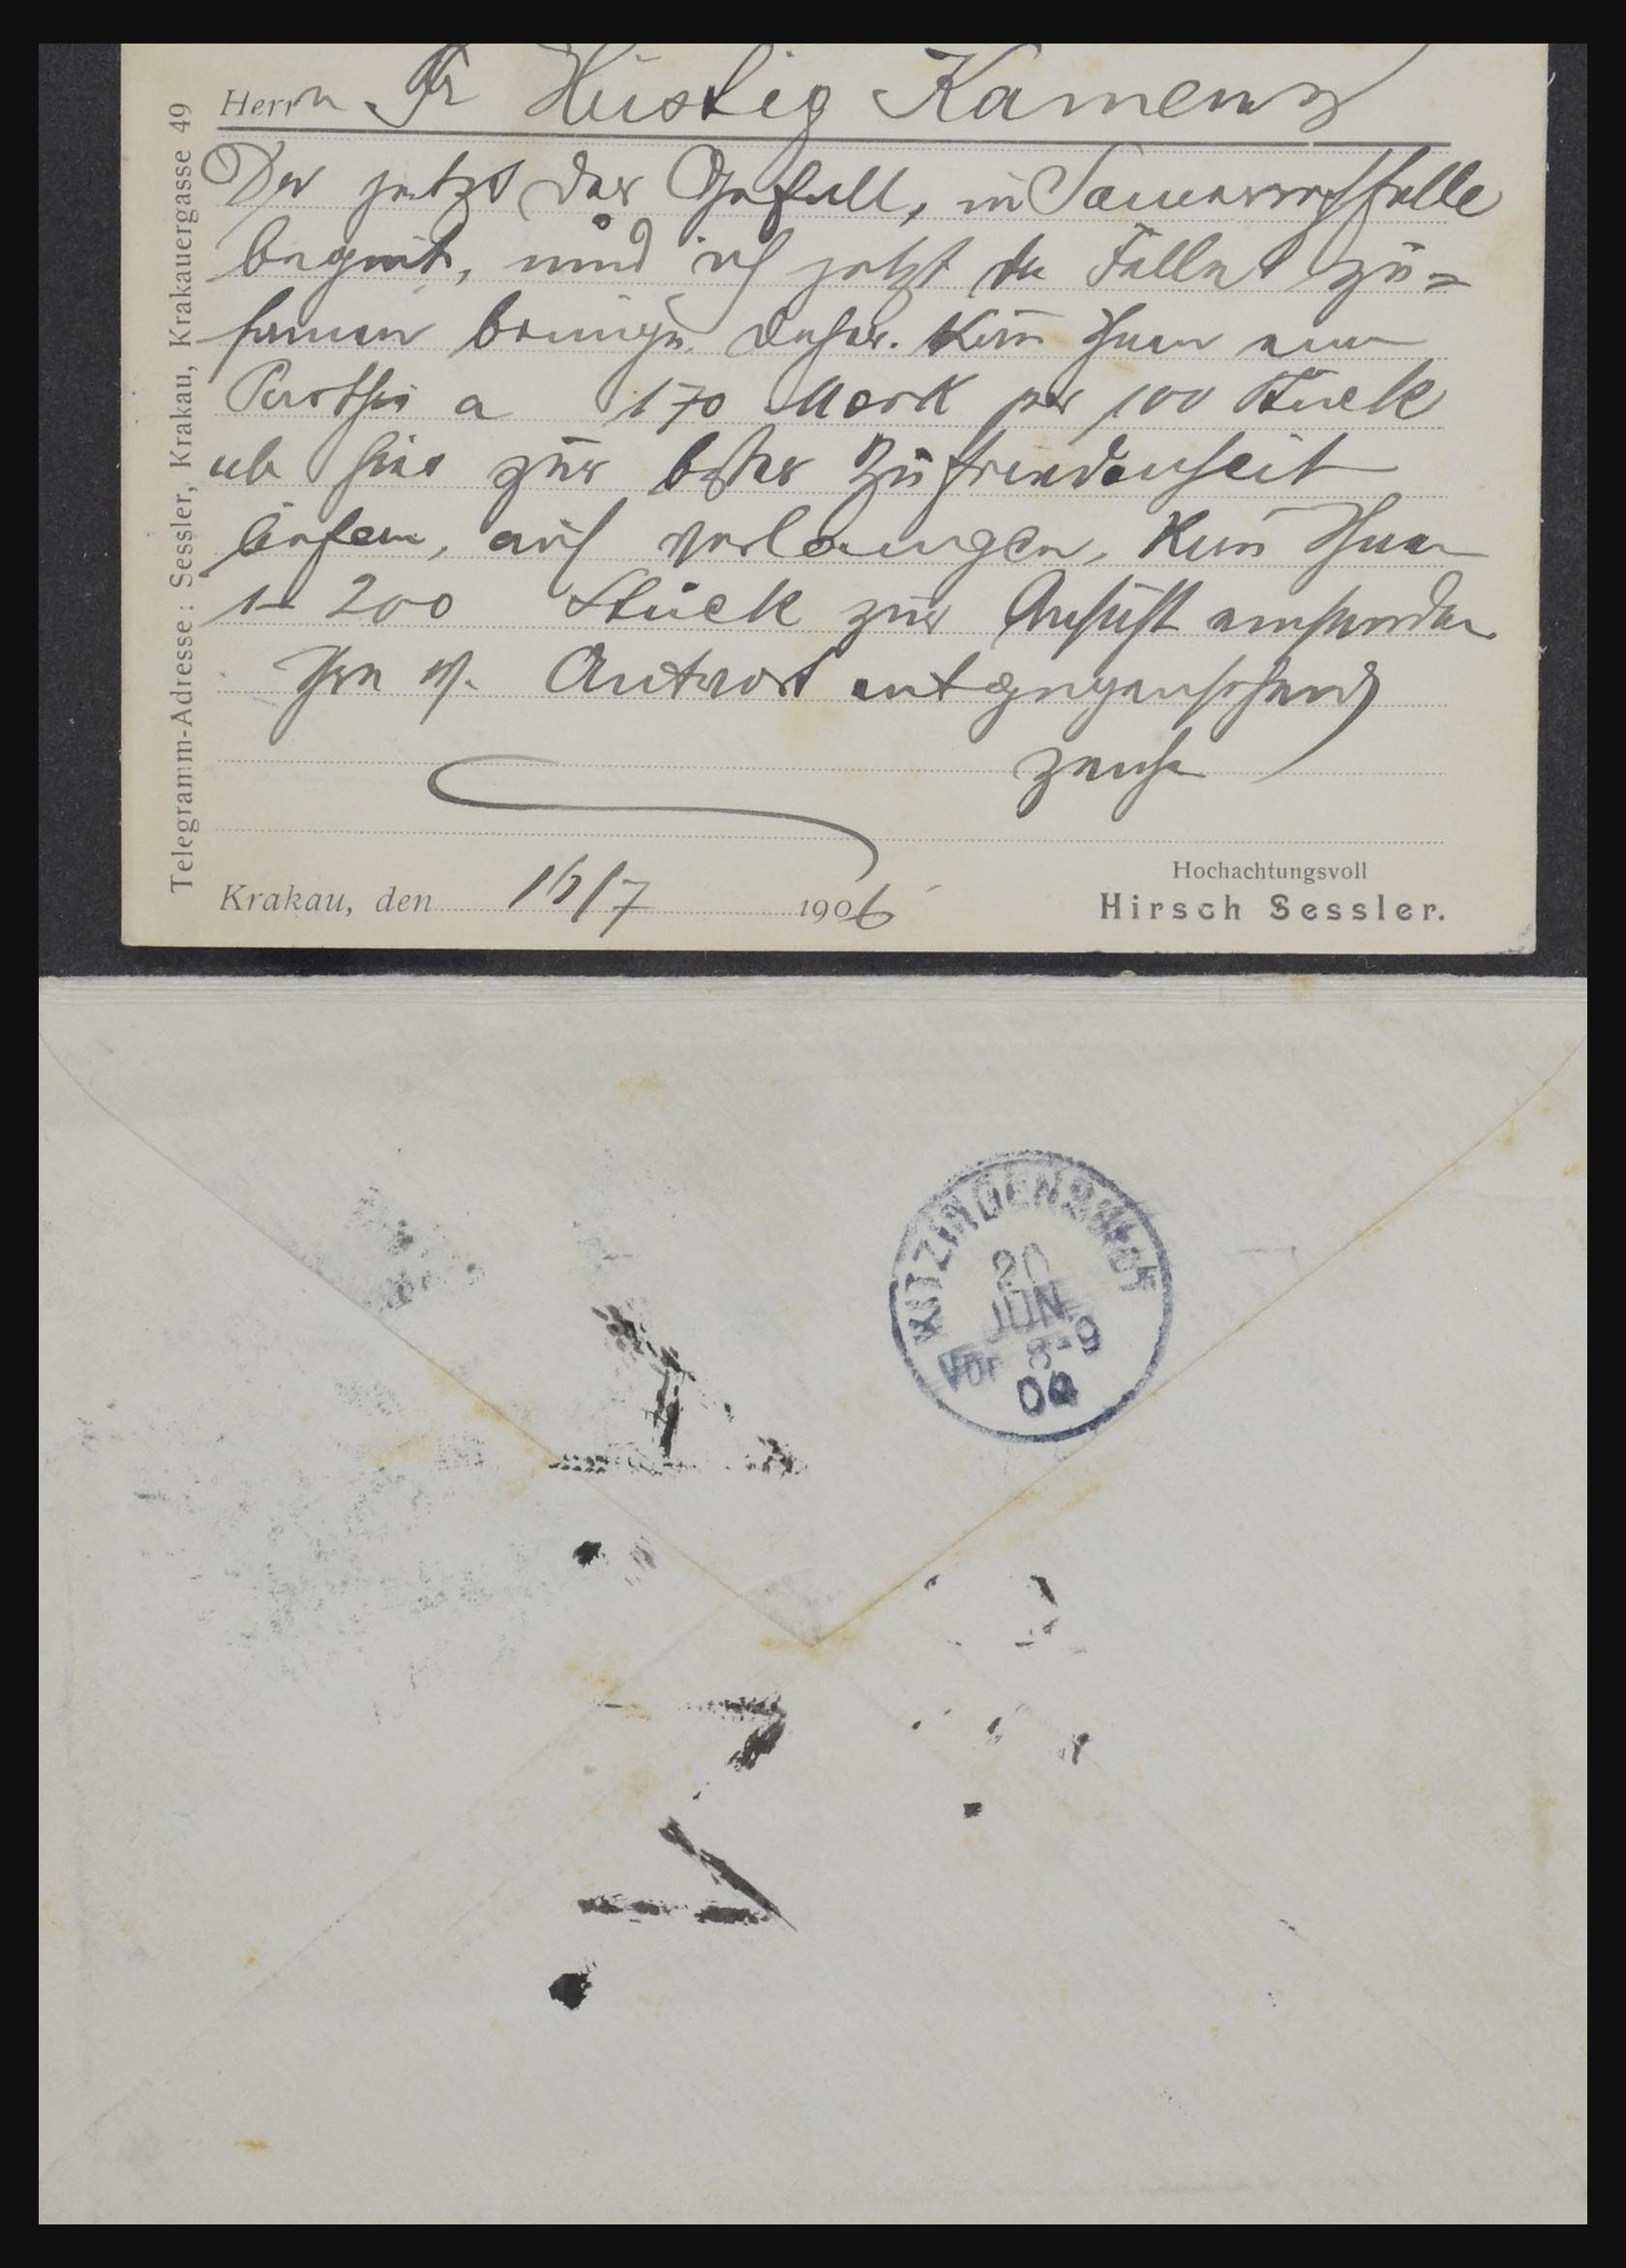 Telegramm-Adresse: Sessler, Krakau, Krakauergasse 49
Herrn Fr Hustig Kamenz
Der jetzt der Gefäll, in
beginnt, und ich jetzt die Felle zu=
bringe daher. kann Ihnen eine
Parthie a 170 Mark per 100 Stück
ab hier zur bester Zufriedenheit
liefern, auf verlangen, kann Ihnen
1-200 Stück zur Ansicht einsenden
Ihre w. Antwort entgegensehend
zeichne
Krakau, den 16/7 1906
Hochachtungsvoll
Hirsch Sessler.
20
JUN
Vor 8-9